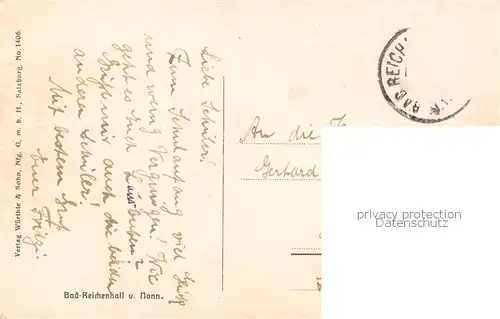 Verlag Würthle & Sohn, Nfg. G. m. b. H., Salzburg. No. 1406.
Liebe Schüler!
Zum Schulanfang viel Glück
und wenig Vergnügen! Wie
geht es Euch Lausbuben?
Grüsst mir auch die beiden
anderen Schüler!
Mit bestem Gruß
Euer
Bad-Reichenhall v. Nonn.
BAD REICH
An die
Gerhard
privacy protection
Datenschutz